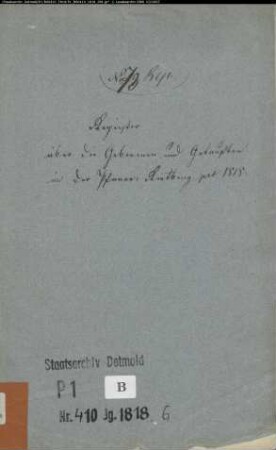 Register
über die Geborenen und Getauften
in der Pfarre Rietberg pro 1818.
Staatsarchiv Detmold
P 1 B
Nr. 410 Jg. 1818 G